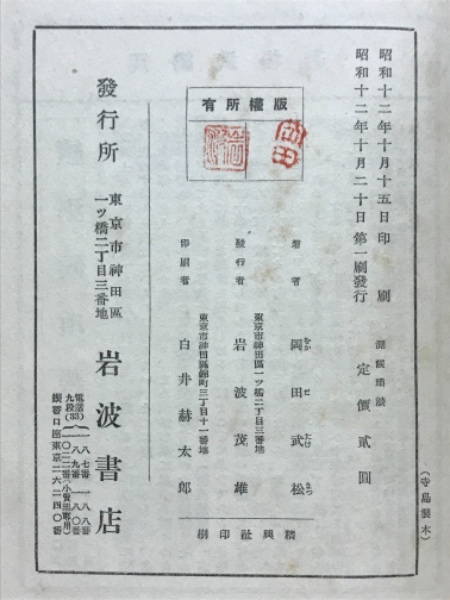 昭和十二年十月十五日印刷
昭和十二年十月二十日第一刷發行
定價貳圓
版權所有
岡田
著者 岡田武松
をか だ たけ まつ
東京市神田區一ツ橋二丁目三番地
發行者 岩波茂雄
東京市神田區錦町三丁目十一番地
印刷者 白井赫太郎
精興社印刷
發行所
東京市神田區
一ツ橋二丁目三番地
岩波書店
電話
九段(33)
一八七番
一八八番
一八九番
一八〇番
振替口座東京二六二四〇番
(寺島製本)